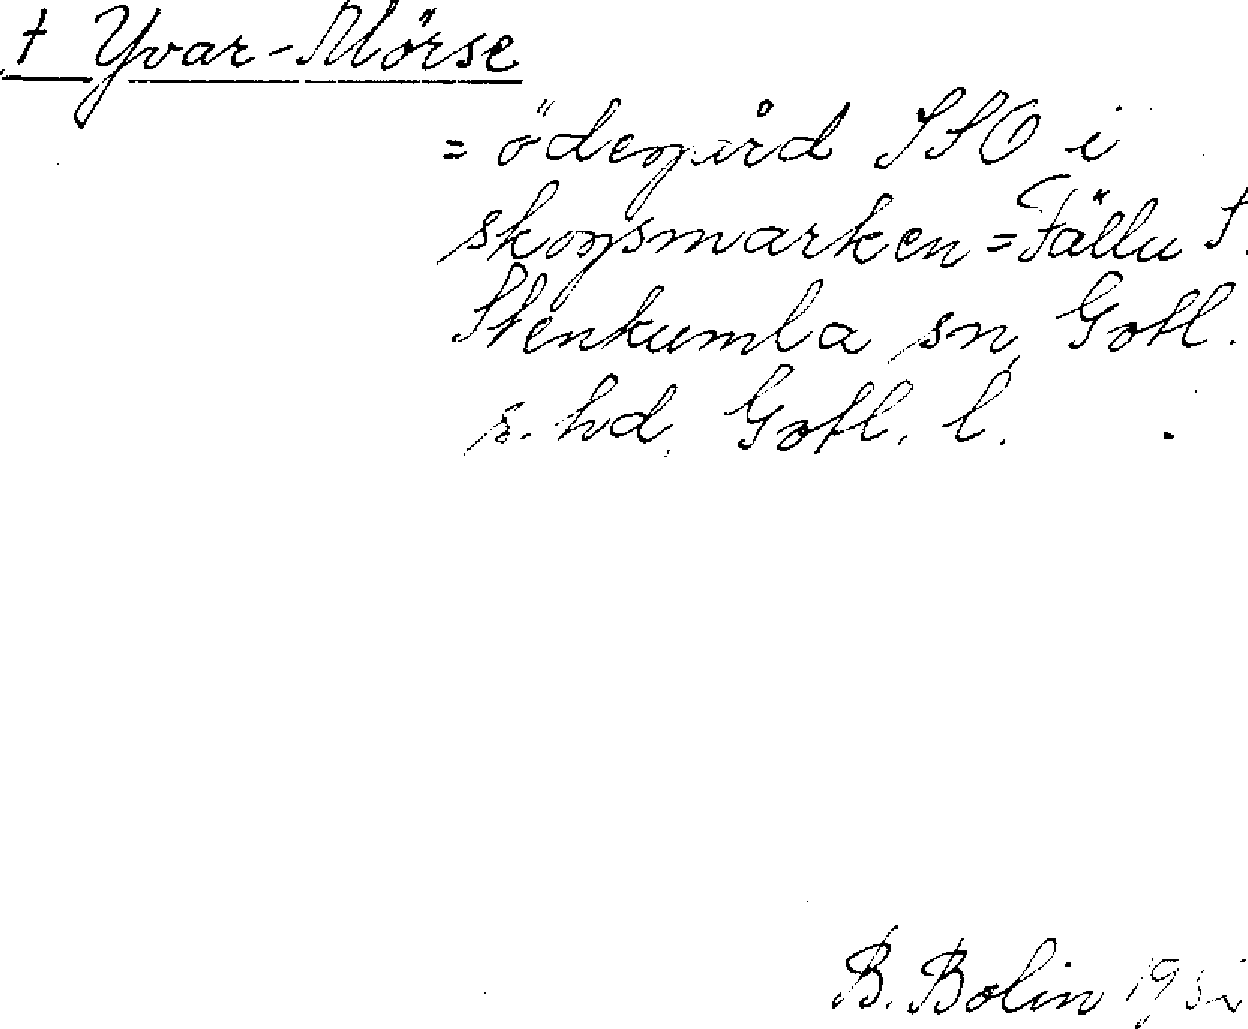 † Yvar-Mörse
= ödegård SSO i
skogsmarken = Fällu S.
Stenkumla sn, Gotl.
s. hd. Gotl. l.
B. Bolin